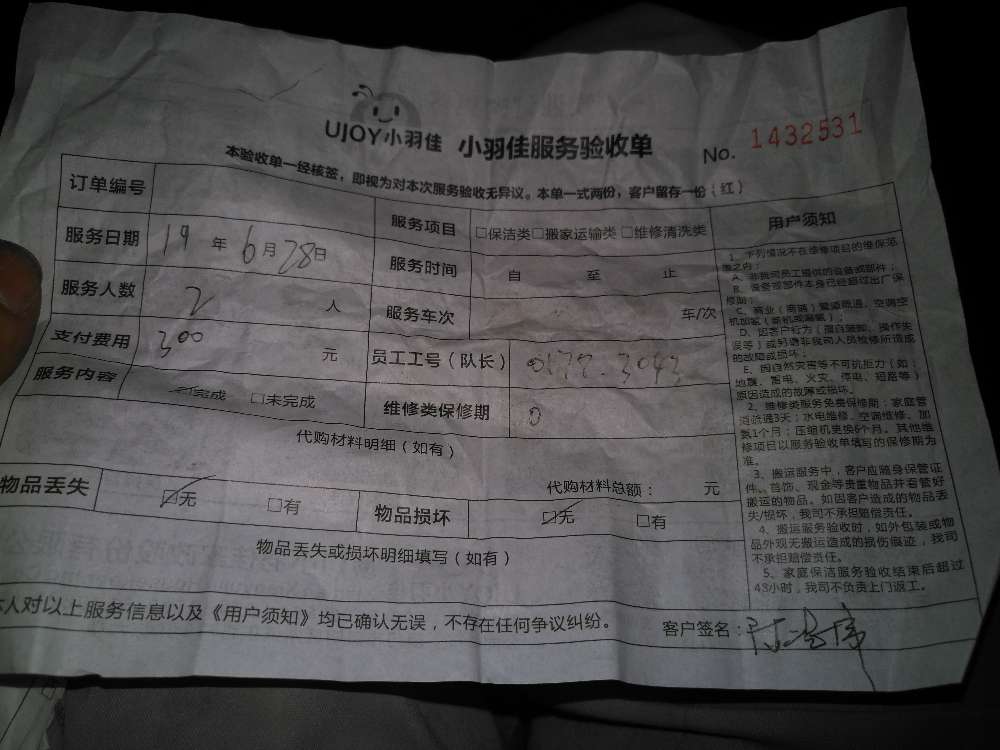 UJOY小羽佳 小羽佳服务验收单 No. 1432531
本验收单一经核签，即视为对本次服务验收无异议。本单一式两份，客户留存一份（红）
订单编号
服务项目 □保洁类□搬家运输类□维修清洗类
服务日期 19年6月28日
服务时间 自 至 止
服务人数 2 人
服务车次 车/次
支付费用 300 元
员工工号（队长） 0172.3043
服务内容 完成 □未完成
维修类保修期 0
代购材料明细（如有）
代购材料总额： 元
物品丢失 □无 □有
物品损坏 □无 □有
物品丢失或损坏明细填写（如有）
本人对以上服务信息以及《用户须知》均已确认无误，不存在任何争议纠纷。
客户签名：
用户须知
1、下列情况不在维修项目的维保范
围之内：
A、非我司员工提供的设备或部件；
B、设备或部件本身已经超过出厂保
修期；
C、商业（商铺）管道疏通、空调空
机加氟
D、因客户行为（擅自装卸、操作失
误等）或另请非我司人员检修所造成
的故障或损坏；
E、因自然灾害等不可抗拒力（如：
地震、雷电、火灾、停电、短路等）
原因造成的故障或损坏。
2、维修类服务免费保修期：家庭管
道疏通3天；水电维修、空调维修、加
氟1个月；压缩机更换6个月。其他维
修项目以服务验收单填写的保修期为
准。
3、搬运服务中，客户应随身保管证
件、首饰、现金等贵重物品并看管好
搬运的物品。如因客户造成的物品丢
失/损坏，我司不承担赔偿责任。
4、搬运服务验收时，如外包装或物
品外观无搬运造成的损伤痕迹，我司
不承担赔偿责任。
5、家庭保洁服务验收结束后超过
48小时，我司不负责上门返工。